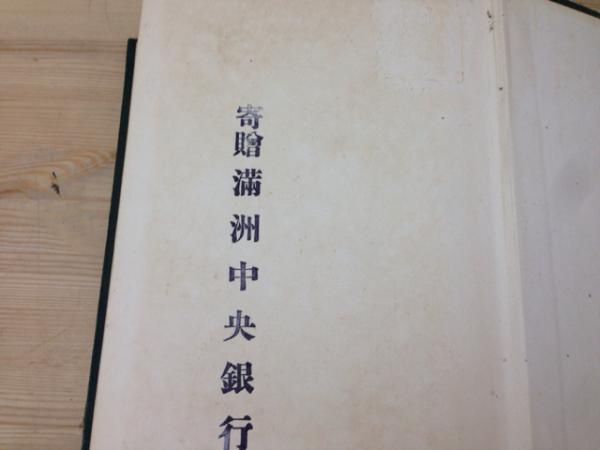 寄贈滿洲中央銀行